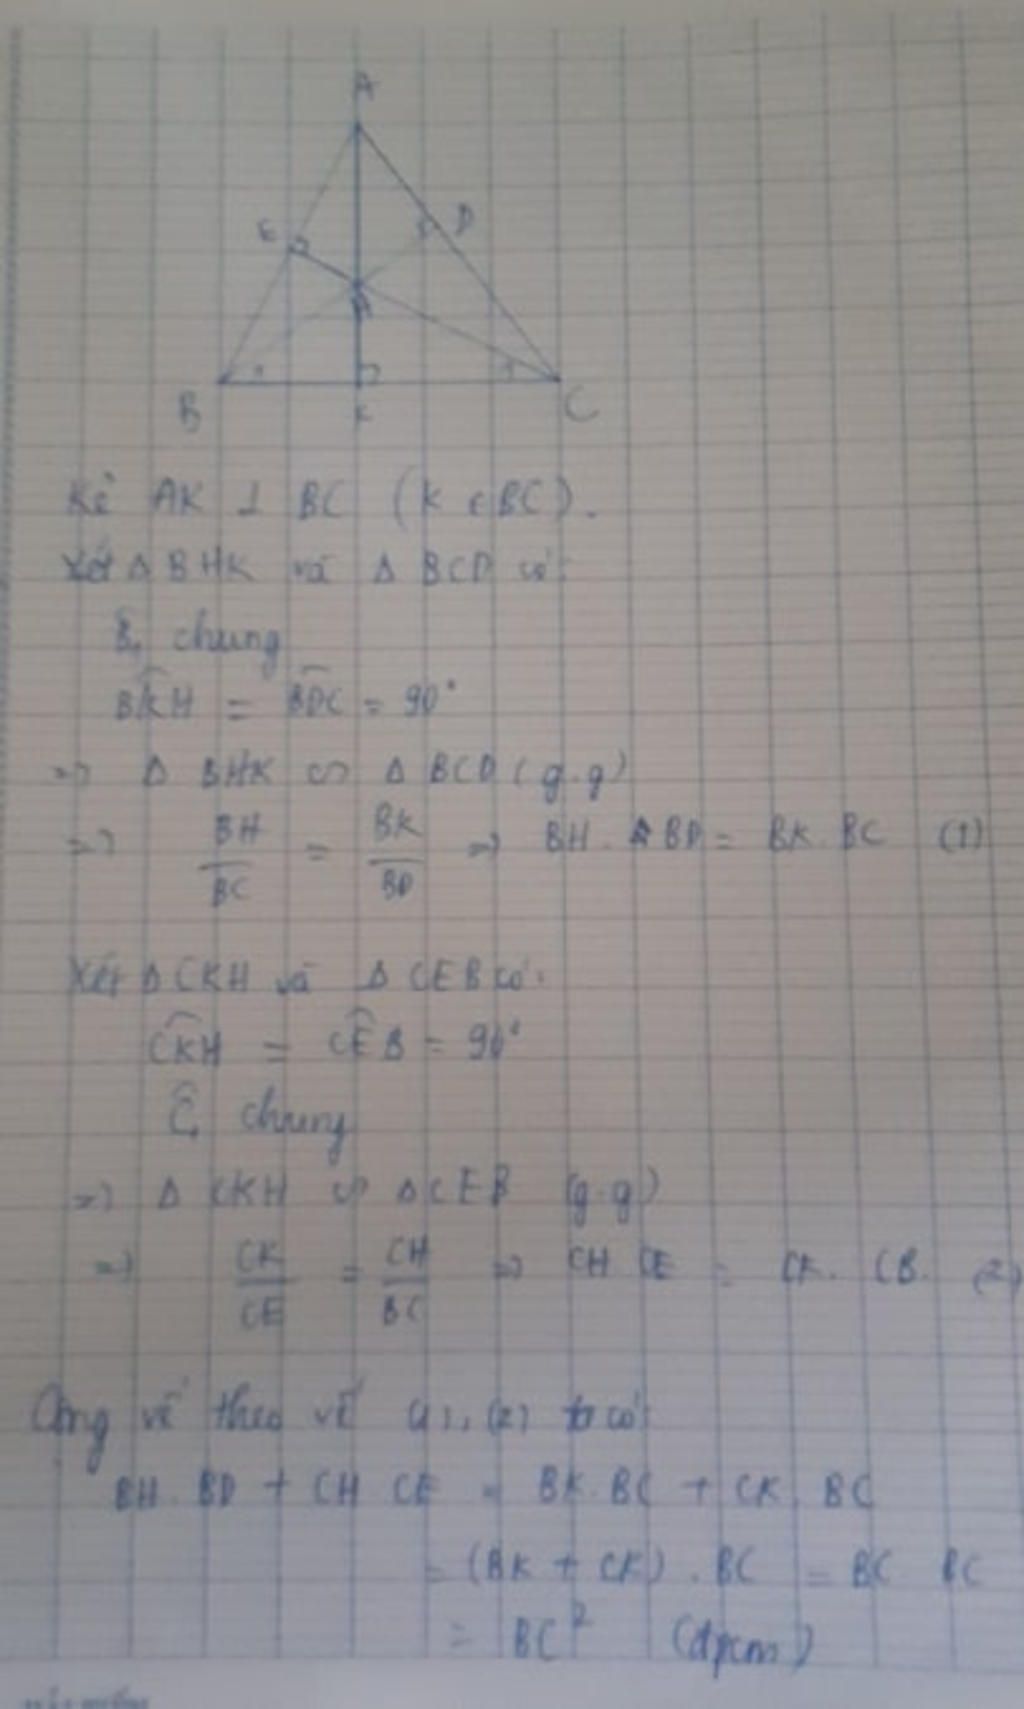 A
E
D
H
B
K
C
Kẻ AK ⊥ BC (K ∈ BC).
Xét Δ BHK và Δ BCD có:
B̂₁ chung
B̂KH = B̂DC = 90°
=> Δ BHK ∽ Δ BCD (g.g)
=> BH/BC = BK/BD => BH. BD = BK. BC (1)
Xét Δ CKH và Δ CEB có:
CK̂H = CÊB = 90°
Ĉ₁ chung
=> Δ CKH ∽ Δ CEB (g.g)
=> CK/CE = CH/BC => CH. CE = CK. CB. (2)
Cộng vế theo vế (1), (2) ta có:
BH. BD + CH. CE = BK. BC + CK. BC
= (BK + CK). BC = BC. BC
= BC² (đpcm)